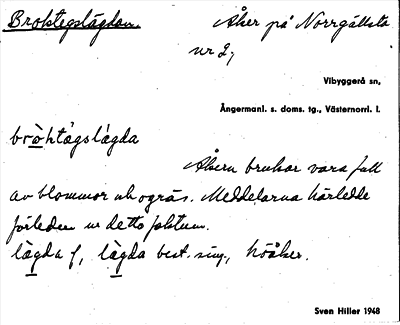 Broktegslägdan. Åker på Norrgällsta
nr 2,
Vibyggerå sn,
Ångermanl. s. doms. tg., Västernorrl. l.
bròktägslägda
Åkern brukar vara full
av blommor och ogräs. Meddelarna härledde
förleden ur detta faktum.
lägda f, lägda best. sing., höåker.
Sven Hiller 1948